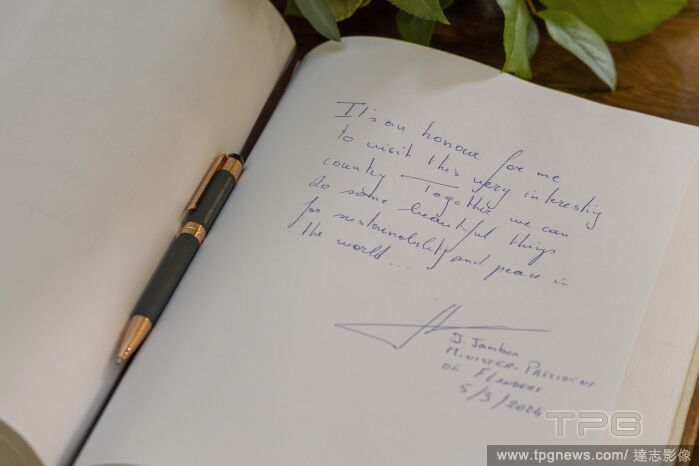 It's an honour for me
to visit this very interesting
country. Together we can
do some beautiful things
for sustainability and peace in
the world...
J. Jambon
MINISTER-PRESIDENT
OF FLANDERS
5/3/2024
TPG
www.tpgnews.com/ 達志影像